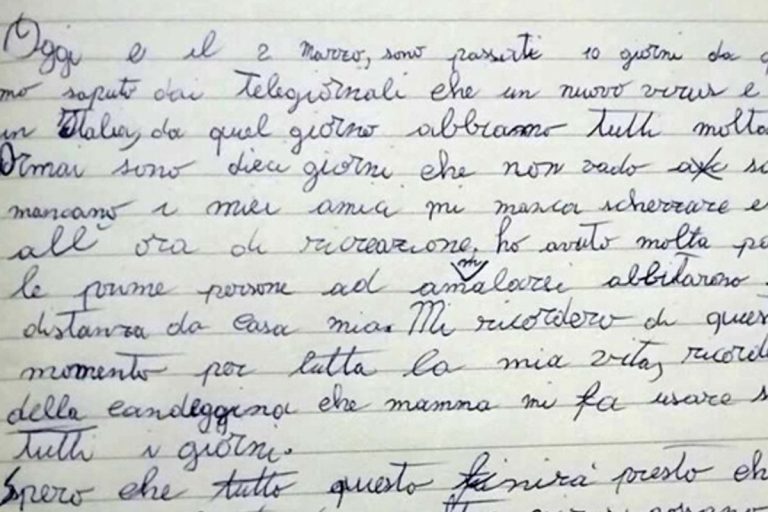 Oggi e il 2 marzo, sono passati 10 giorni da q
mo saputo dai telegiornali che un nuovo virus e
in Italia, da quel giorno abbiamo tutti molta
Ormai sono dieci giorni che non vado a sc
mancano i miei amici mi manca scherzare e
all' ora di ricreazione, ho avuto molta pa
le prime persone ad ammalarci abbitarono
distanza da casa mia. Mi ricordero di quest
momento per tutta la mia vita, ricorde
della candeggina che mamma mi fa usare s
tutti i giorni.
Spero che tutto questo finirà presto ch